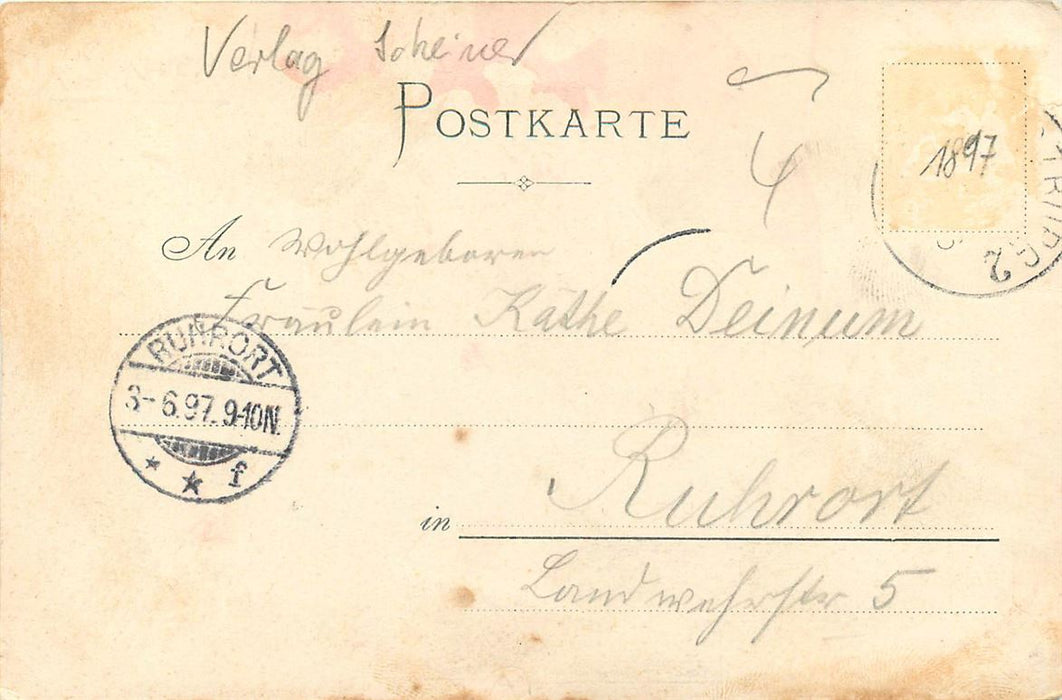 Verlag Scheiner
POSTKARTE
1897
4
2
An Wohlgeboren
Fräulein Käthe Deinum
RUHRORT
3-6.97.9-10N.
f
in Ruhrort
Landwehrstr 5